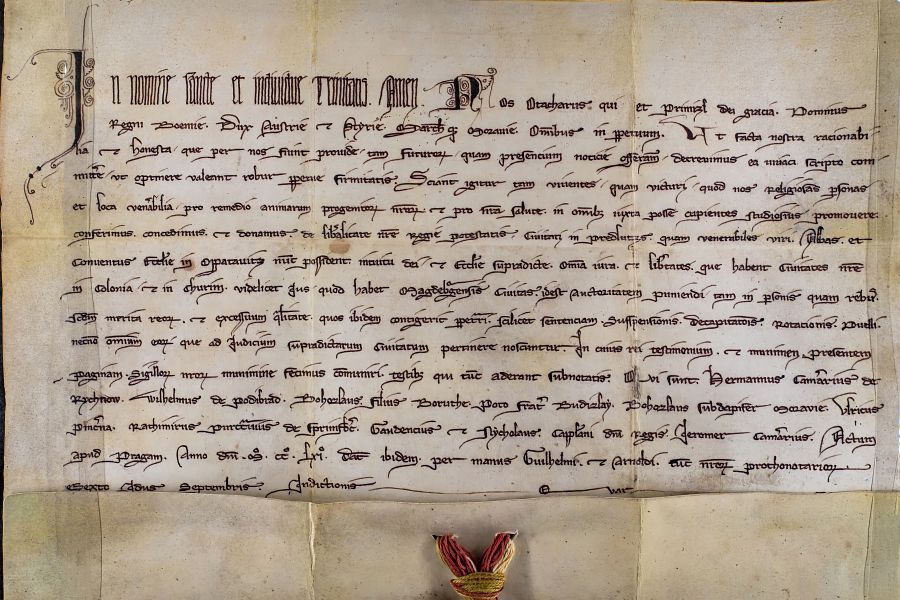 In nomine sancte et individue Trinitatis. Amen. Nos Otacharus qui et Primizl dei gracia. Dominus
Regni Boemie. Dux Austrie et Styrie. Marchio Moravie. Omnibus in perpetuum. Ut facta nostra racionabi
lia et honesta que per nos fiunt provide tam futurorum quam presencium noticie offeram decrevimus ea vivaci scripto com
ut optinere valeant robur perpetue firmitatis. Sciant igitur tam viventes quam victuri quod nos religiosas personas
et loca venerabilia pro remedio animarum progenitorum nostrorum et pro nostra salute in omnibus iuxta posse cupientes studiosius promovere.
conferimus. concedimus. et donamus de liberalitate nostre Regie potestatis Civitati in quam venerabiles viri. Abbas. et
Conventus Ecclesie in Oppatavitz possident. intuitu dei et Ecclesie supradicte. Omnia iura. et libertates. que habent Civitates nostre
in Colonia et in Churim. videlicet Ius quod habet Magdeburgensis Civitas. idest Auctoritatem puniendi tam in personis quam rebus.
secundum merita reorum. et excessuum qualitatem. quos ibidem contigerit perpetrari. scilicet sentenciam. Suspensionis. Decapitationis. Rotacionis. Duelli.
omnium eorum que ad Iudicium supradictarum Civitatum pertinere noscuntur. In cuius rei testimonium. et munimen presentem
paginam. Sigillorum nostrorum munimine fecimus communiri. testibus qui tunc aderant subnotatis. Qui sunt. Hermannus Camerarius de
Rychnow. Wilhelmus de podibrad. Bohuzlaus filius Boruthe. Poto frater Budizlay. Bohuzlaus subdapifer Moravie. Ulricus
pincerna. Rathimirus purcravius de Gaudencius et Nycholaus. Capellani domini Regis. Ieromer Camerarius. Actum
apud Pragam. Anno domini. Mo. CCo. Lxio. Datum ibidem. per manus Guilhelmi. et Arnoldi. tunc nostrorum prothonotariorum
Sexto Idus Septembris. Indictionis